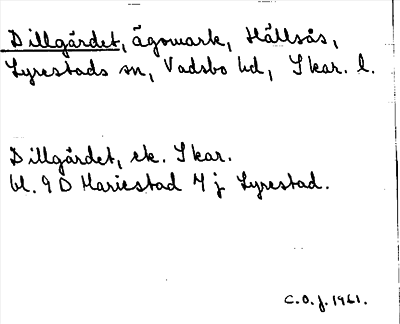 Dillgärdet, ägomark, Hällsås,
Lyrestads sn, Vadsbo hd, Skar. l.
Dillgärdet, ek. Skar.
bl. 9 D Mariestad 7 j Lyrestad.
C.O.J. 1961.